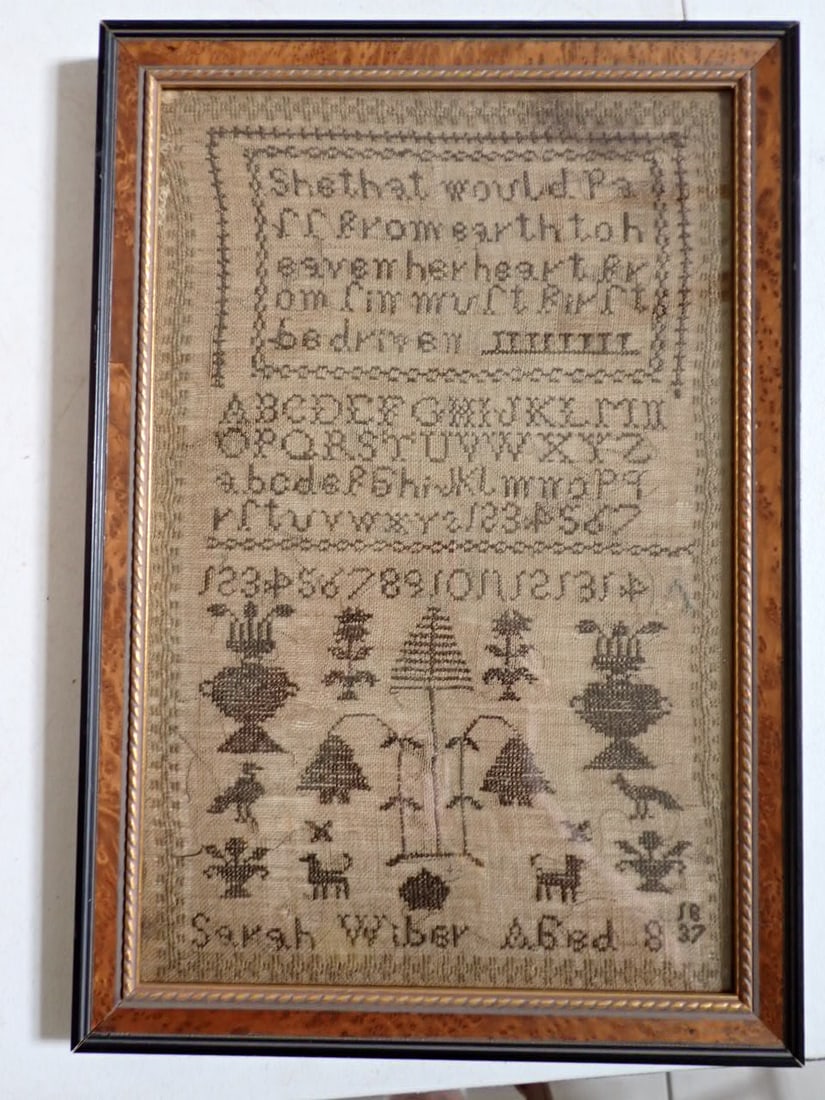 She that would Pa
ſſ from earth to h
eaven her heart fr
om ſin muſt firſt
be driven
ABCDEFGHIJKLMN
OPQRSTUVWXYZ
abcdefghijklmnopq
rſtuvwxyz1234567
1234567891011121314
Sarah Wiber Aged 8 18
37